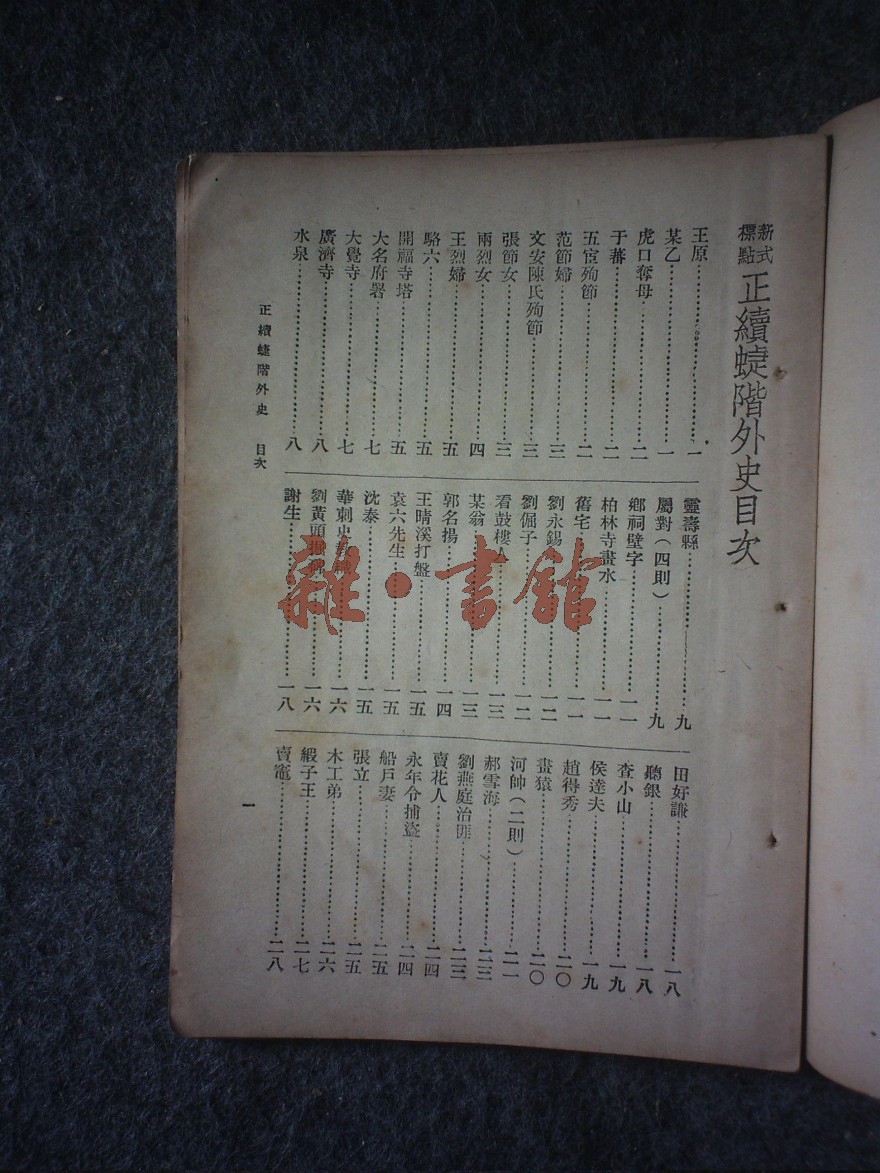 新式標點 正續蜨階外史目次
王原……一
某乙……一
虎口奪母……二
于蕃……二
五宦殉節……二
范節婦……三
文安陳氏殉節……三
張節女……三
兩烈女……四
王烈婦……五
駱六……五
開福寺塔……五
大名府署……七
大覺寺……七
廣濟寺……八
水泉……八
靈壽縣……九
屬對（四則）……九
鄉祠壁字……一一
柏林寺畫水……一一
舊宅……一一
劉永錫……一二
劉倔子……一二
看鼓樓人……一三
某翁……一三
郭名揚……一四
王晴溪打盤……一五
袁六先生……一五
沈泰……一五
華刺史……一六
劉黃頭……一六
謝生……一八
田好謙……一八
聽銀……一八
查小山……一九
侯達夫……一九
趙得秀……二〇
畫猿……二〇
河帥（二則）……二一
郝雪海……二三
劉燕庭治匪……二三
賣花人……二四
永年令捕盜……二四
船戶妻……二五
張立……二五
木工弟……二六
緞子王……二七
賣竈……二八
正續蜨階外史 目次
一
雜·書館